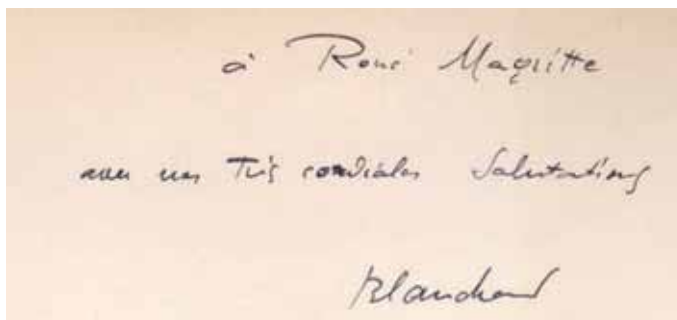 à René Magritte
avec mes Très cordiales Salutations
Blanchard